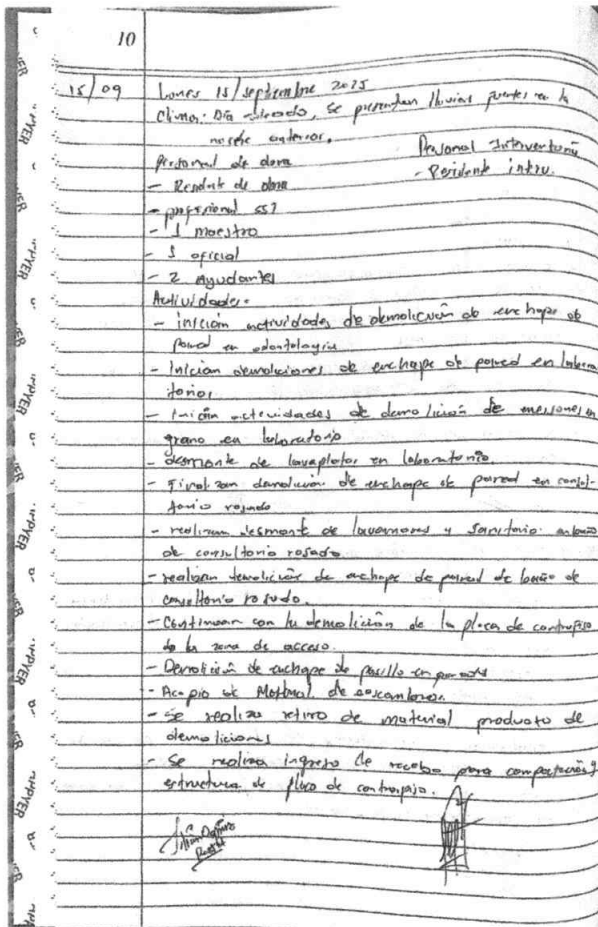 10
15/09 Lunes 15/septiembre 2025
Clima: Día nublado, se presentan lluvias fuertes en la
noche anterior.
Personal de obra Personal Interventoria
- Residente de obra - Residente interv.
- profesional SST
- 1 maestro
- 1 oficial
- 2 Ayudantes
Actividades.
- inician actividades de demolición de enchape de
pared en odontología
- Inician demoliciones de enchape de pared en labora
torios
- Inician actividades de demolición de mesones en
grano en laboratorio
- desmonte de lavaplatos en laboratorio.
- Finalizan demolición de enchape de pared en consul-
torio rosado
- realizan desmonte de lavamanos y sanitario en baño
de consultorio rosado
- realizan demolición de enchape de pared de baño de
consultorio rosado.
- Continuan con la demolición de la placa de contrapiso
de la zona de acceso.
- Demolición de enchape de pasillo en
- Acopio de Material de escombros.
- Se realiza retiro de material producto de
demoliciones
- Se realiza ingreso de recebo para compactación y
estructura de placa de contrapiso.